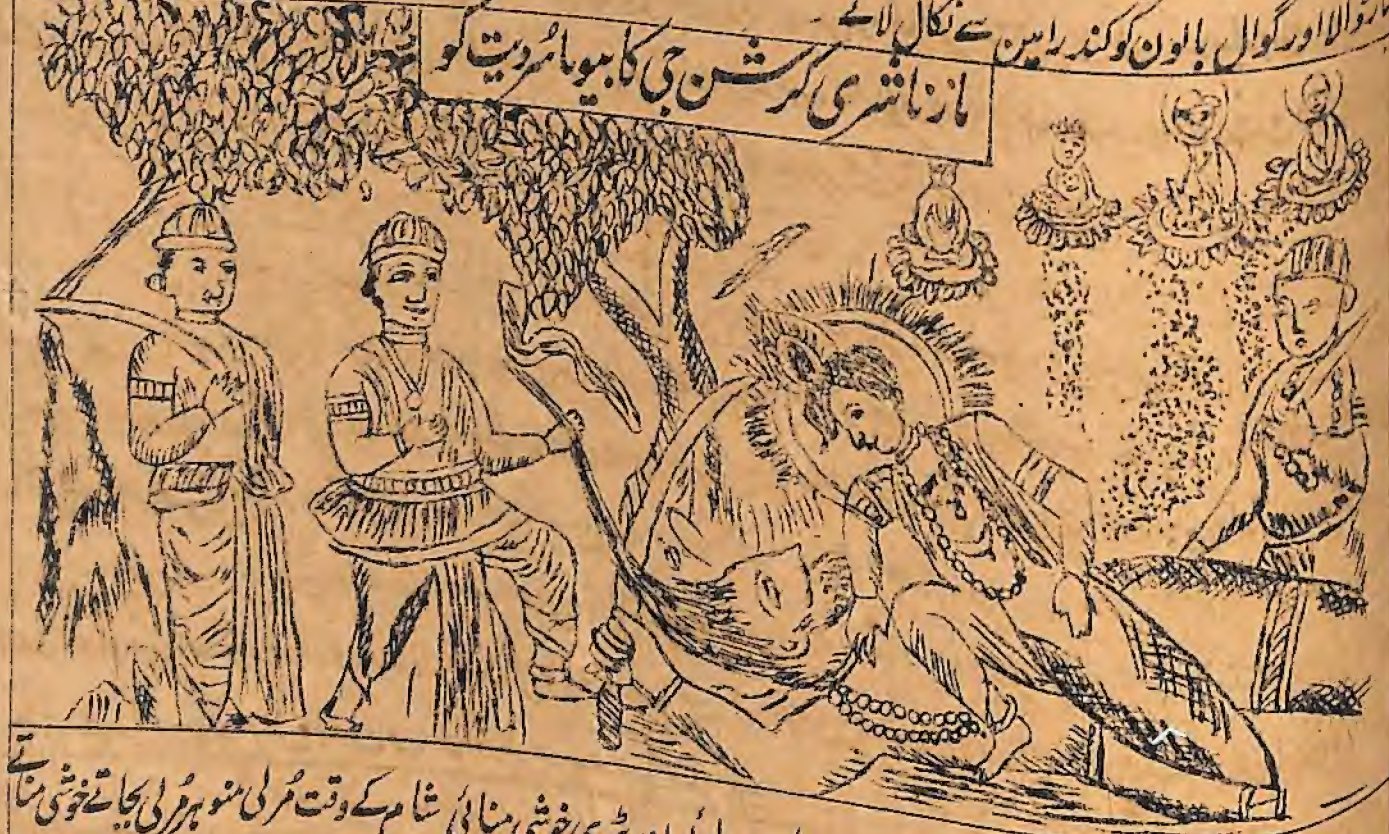 اور گوال بالون کو کندرا مین سے نکال لائے
مارنا شری کرشن جی کا بیوماسُر دیت کو
خوشی منائی شام کے وقت مُرلی منوہر مُرلی بجاتے خوشی مناتے